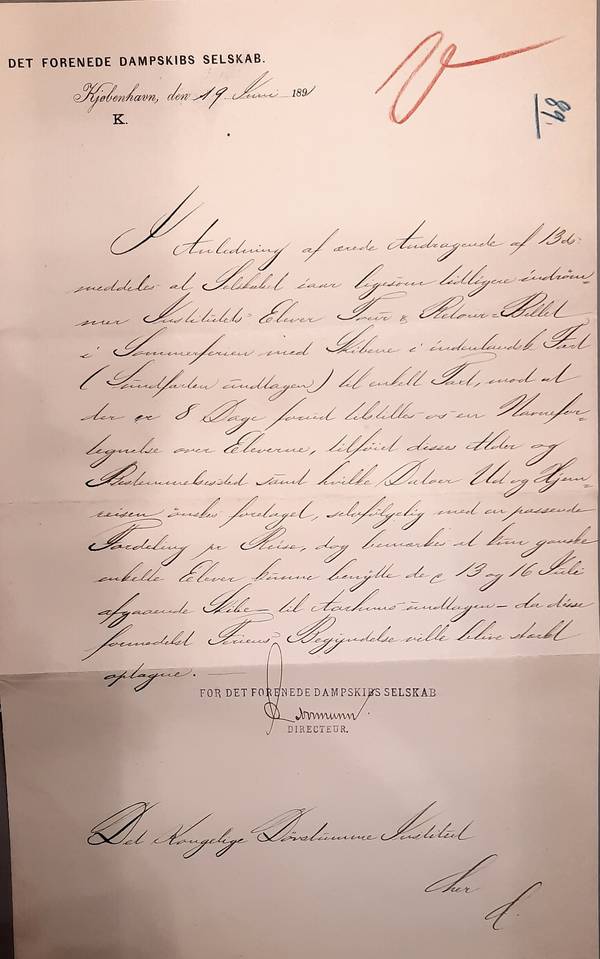 DET FORENEDE DAMPSKIBS SELSKAB.
Kjøbenhavn, den 19 Juni 1891
K.
89.
I Anledning af ærede Andragende af 13 ds
meddeles at Selskabet iaar ligesom tidligere indrøm-
mer Institutets Elever Tour & Retour-Billet
i Sommerferien med Skibene i indenlandsk Fart
(Sundfarten undtagen) til enkelt Taxt, mod at
der 8 Dage forud tilstilles os en Navnefor-
tegnelse over Eleverne, tilføiet disses Alder og
Bestemmelsessted samt hvilke Datoer Ud og Hjem-
reisen ønskes foretaget, selvfølgelig med en passende
Fordeling pr Reise, dog bemærkes at kun ganske
enkelte Elever kunne benytte de 13 og 16 Juli
afgaaende Skibe - til Aarhuus undtagen - da disse
formedelst Feriens Begyndelse ville blive stærkt
optagne.
FOR DET FORENEDE DAMPSKIBS SELSKAB
DIRECTEUR.
Det Kongelige Døvstumme Institut
her